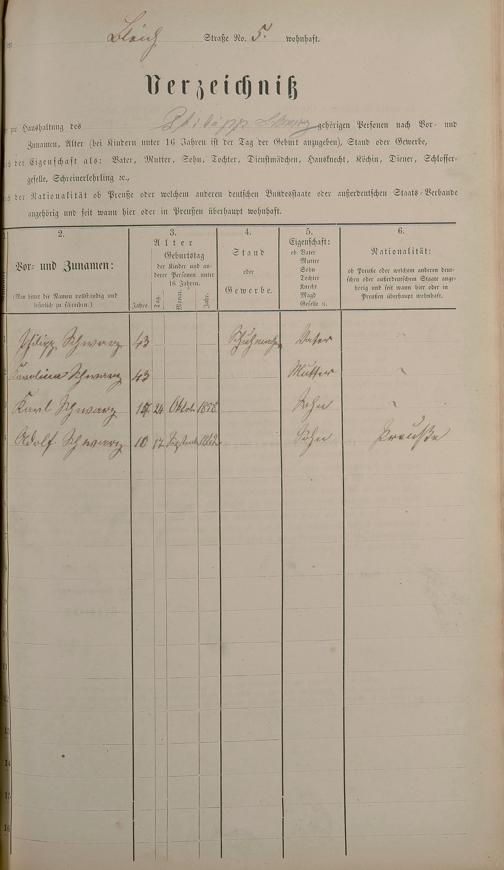 Bleich Straße No. 5. wohnhaft.
Verzeichniß
zur Haushaltung des Philipp Schwarz gehörigen Personen nach Vor- und
Zunamen, Alter (bei Kindern unter 16 Jahren ist der Tag der Geburt anzugeben), Stand oder Gewerbe,
der Eigenschaft als: Vater, Mutter, Sohn, Tochter, Dienstmädchen, Hausknecht, Köchin, Diener, Schlosser-
geselle, Schreinerlehrling ꝛc.,
der Nationalität ob Preuße oder welchem anderen deutschen Bundesstaate oder außerdeutschen Staats-Verbande
angehörig und seit wann hier oder in Preußen überhaupt wohnhaft.
2. 3. 4. 5. 6.
Vor- und Zunamen:
(Man bittet die Namen vollständig und
leserlich zu schreiben.)
Alter
Geburtstag
der Kinder und an-
derer Personen unter
16 Jahren.
Jahre. Tag. Monat. Jahr.
Stand
oder
Gewerbe.
Eigenschaft:
ob Vater
Mutter
Sohn
Tochter
Knecht
Magd
Geselle ꝛc.
Nationalität:
ob Preuße oder welchem anderen deut-
schen oder außerdeutschen Staate ange-
hörig und seit wann hier oder in
Preußen überhaupt wohnhaft.
Philipp Schwarz 43 Schuhmacher Vater "
Karolina Schwarz 43 Mutter "
Karl Schwarz 24 Oktob. 1858 Sohn "
Adolf Schwarz 10 17 Septemb. 1862 Sohn Preuße